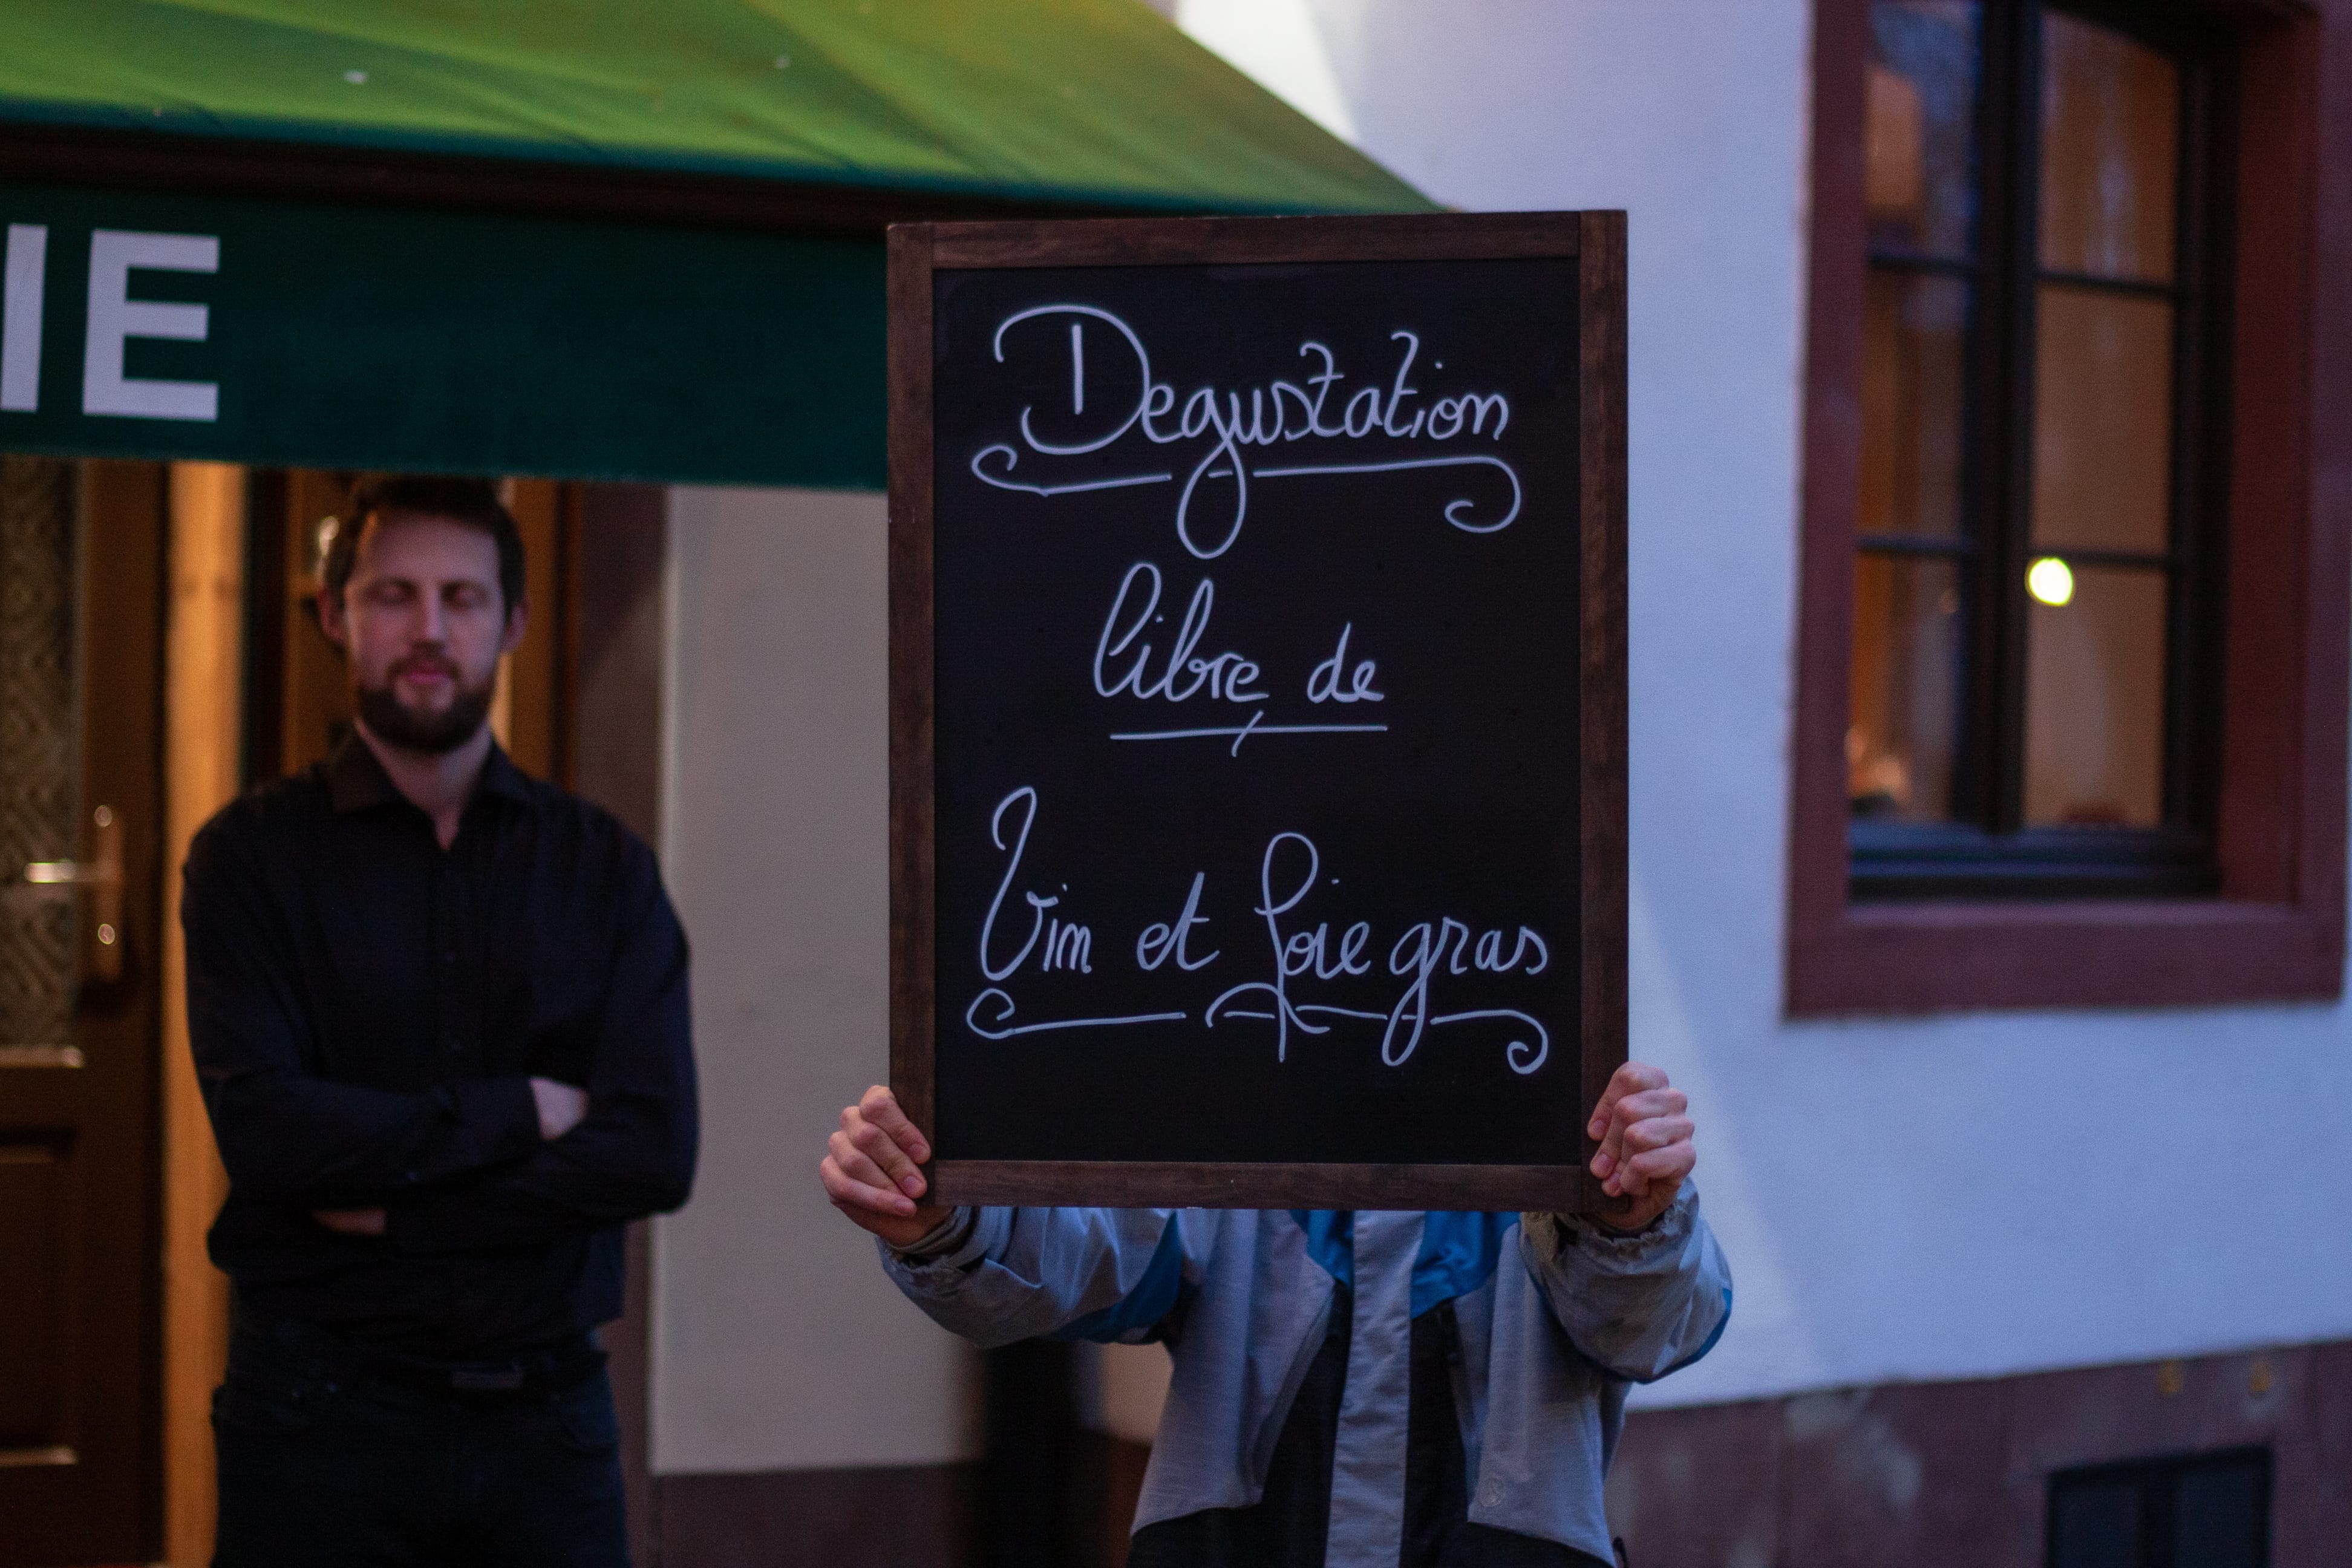 IE
Degustation
libre de
Vin et foie gras